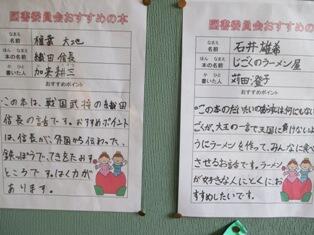 図書委員会おすすめの本
なまえ
名前
ほん なまえ
本の名前 織田 信長
か ひと
書いた人 加来 耕三
おすすめポイント
この本は、戦国武将の織田
信長の話です。おすすめポイント
は、信長が、外国から伝わった、
鉄ぽうで、てきをたおす
ところです。はく力が
あります。
図書委員会おすすめの本
なまえ
名前 石井 雄希
ほん なまえ
本の名前 じごくのラーメン屋
か ひと
書いた人 苅田 澄子
おすすめポイント
この本の
大王の一言で天国に負けないよ
うにラーメンを作って、みんなに食べ
させるお話です。ラーメン
が好きな人にとくにお
すすめしたいです。